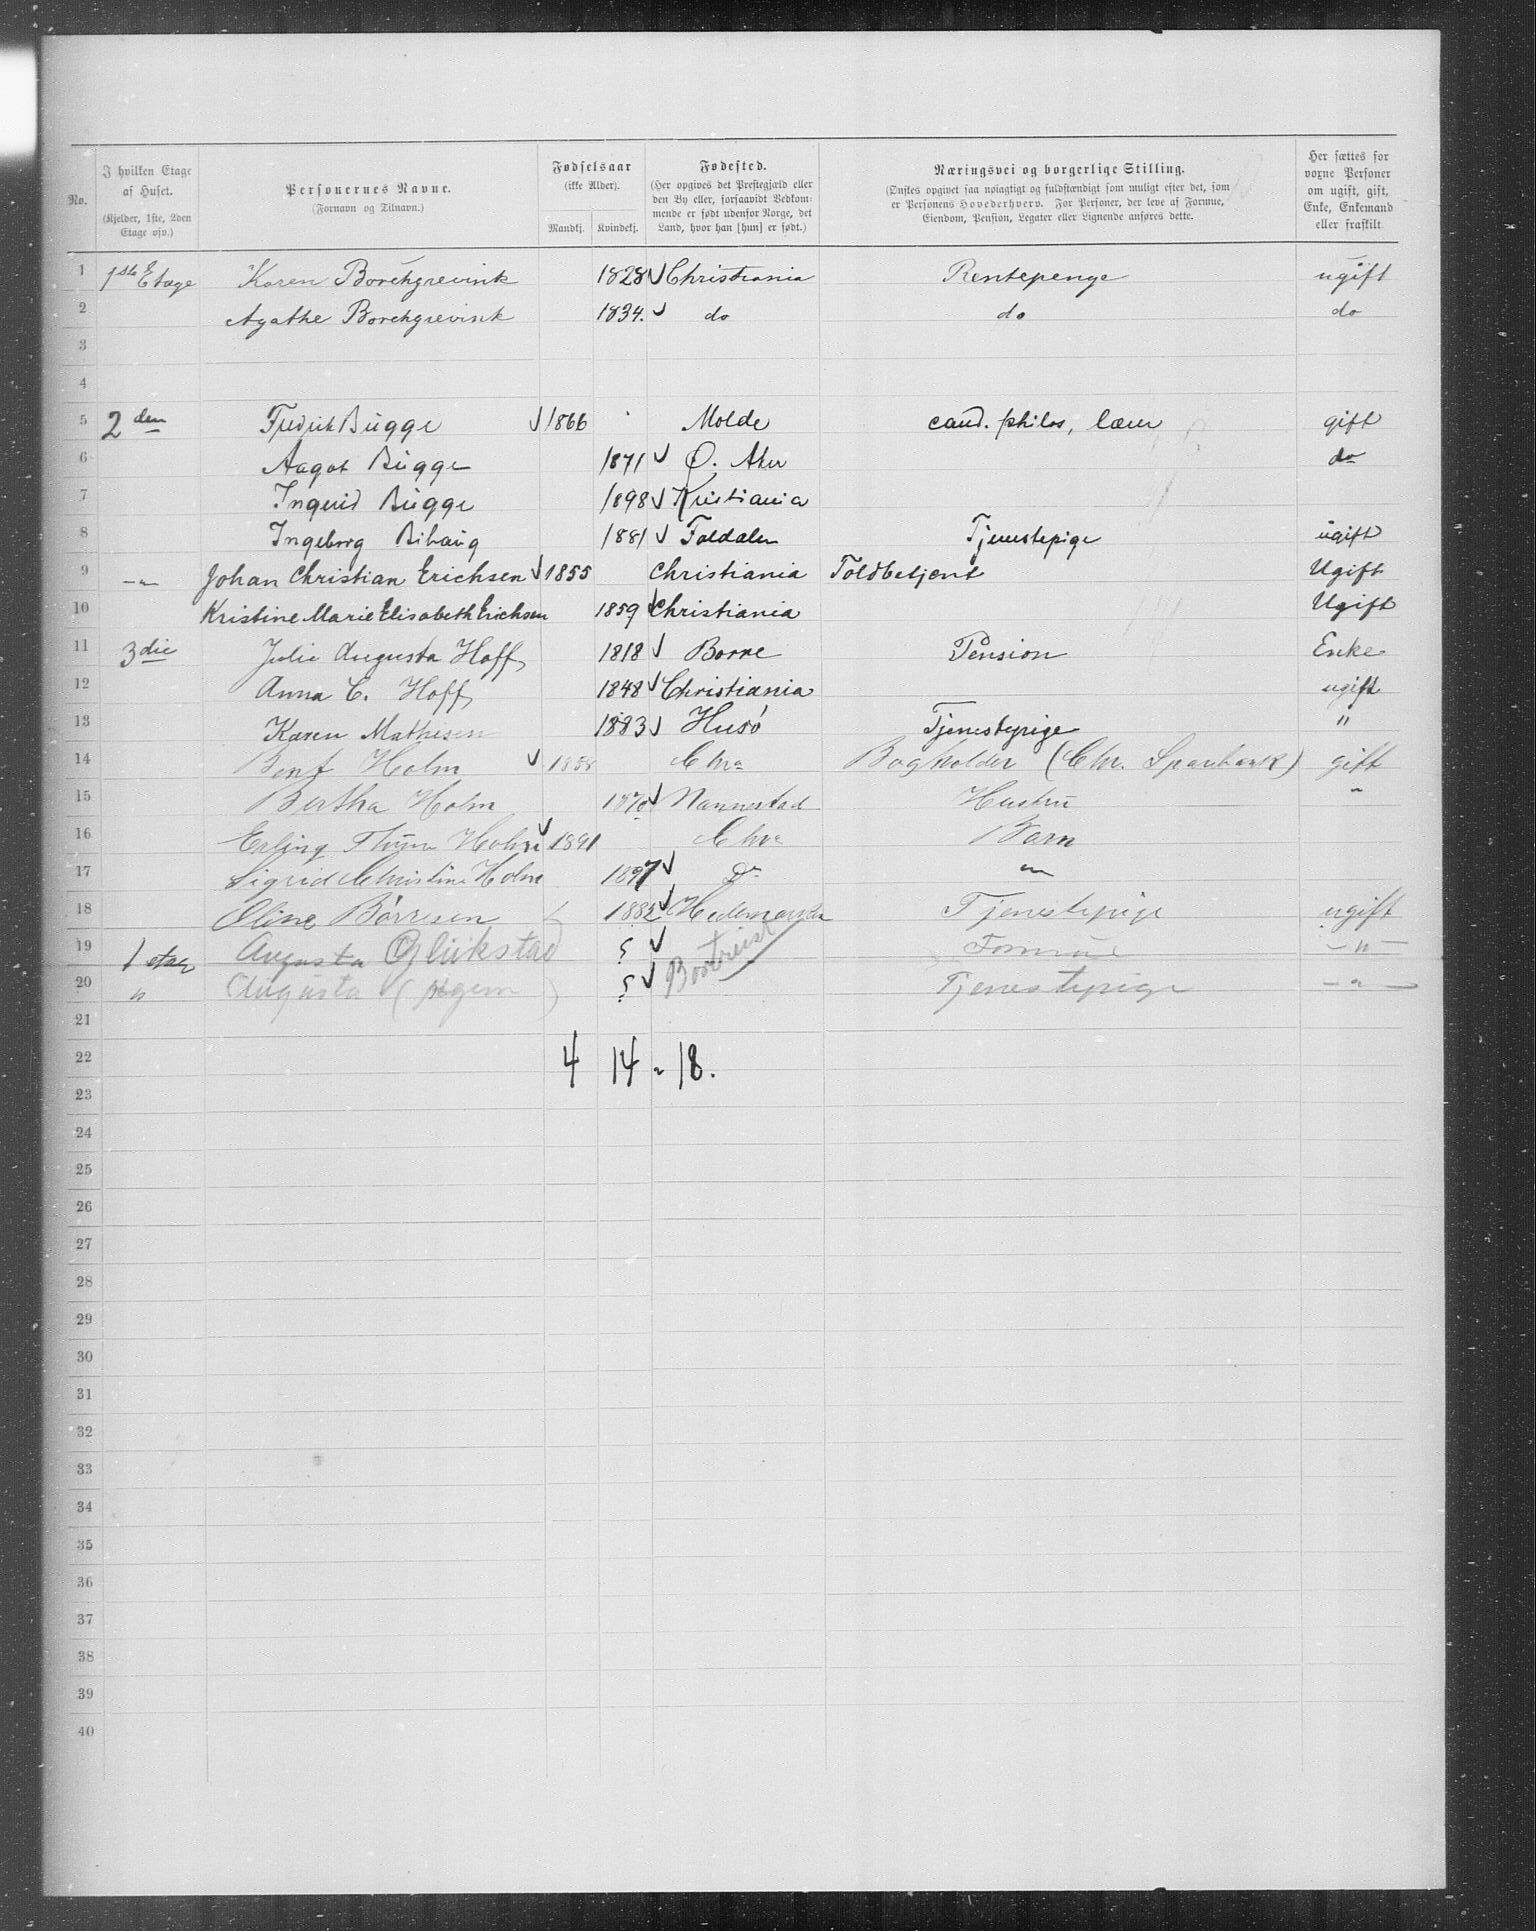 No.
I hvilken Etage af Huset. (Kjelder, 1ste, 2den Etage osv.)
Personernes Navne. (Fornavn og Tilnavn.)
Fødselsaar (ikke Alder). Mandkj. Kvindekj.
Fødested. (Her opgives det Prestegjæld eller den By eller, forsaavidt Vedkommende er født udenfor Norge, det Land, hvor han [hun] er født.)
Næringsvei og borgerlige Stilling. (Ønskes opgivet saa nøiagtigt og fuldstændigt som muligt efter det, som er Personens Hovederhverv. For Personer, der leve af Formue, Eiendom, Pension, Legater eller Lignende anføres dette.
Her sættes for voxne Personer om ugift, gift, Enke, Enkemand eller fraskilt
1 1ste Etage Karen Borchgrevink 1828 Christiania Rentepenge ugift
2 Agathe Borchgrevink 1834. do do do
3
4
5 2den Fredrik Bugge 1866 Molde cand. philos, lærer gift
6 Aagot Bugge 1871 Ø. Aker do
7 Ingrid Bugge 1898 Kristiania
8 Ingeborg Bihaug 1881 Foldalen Tjenestepige ugift
9 -"- Johan Christian Erichsen 1855 Christiania Toldbetjent Ugift
10 Kristine Marie Elisabeth Erichsen 1859 Christiania Ugift
11 3die Julie Augusta Hoff 1818 Borre Pension Enke
12 Anna C. Hoff 1848 Christiania ugift
13 Karen Mathisen 1883 Husö Tjenestepige "
14 Bent Holm 1858 Chra Bogholder (Chr. Sparebank) gift
15 Bertha Holm 1870 Nannestad Hustru "
16 Erling Thum Holm 1891 Chra Barn
17 Sigrid Christine Holm 1897 Do "
18 Oline Börresen 1882 Hedemarken Tjenestepige ugift
19 1 etag Augusta Glükstad ? Bortreist Formue -"-
20 " Augusta (Igjem) ? Tjenestepige -"-
21
22 4 14 = 18.
23
24
25
26
27
28
29
30
31
32
33
34
35
36
37
38
39
40